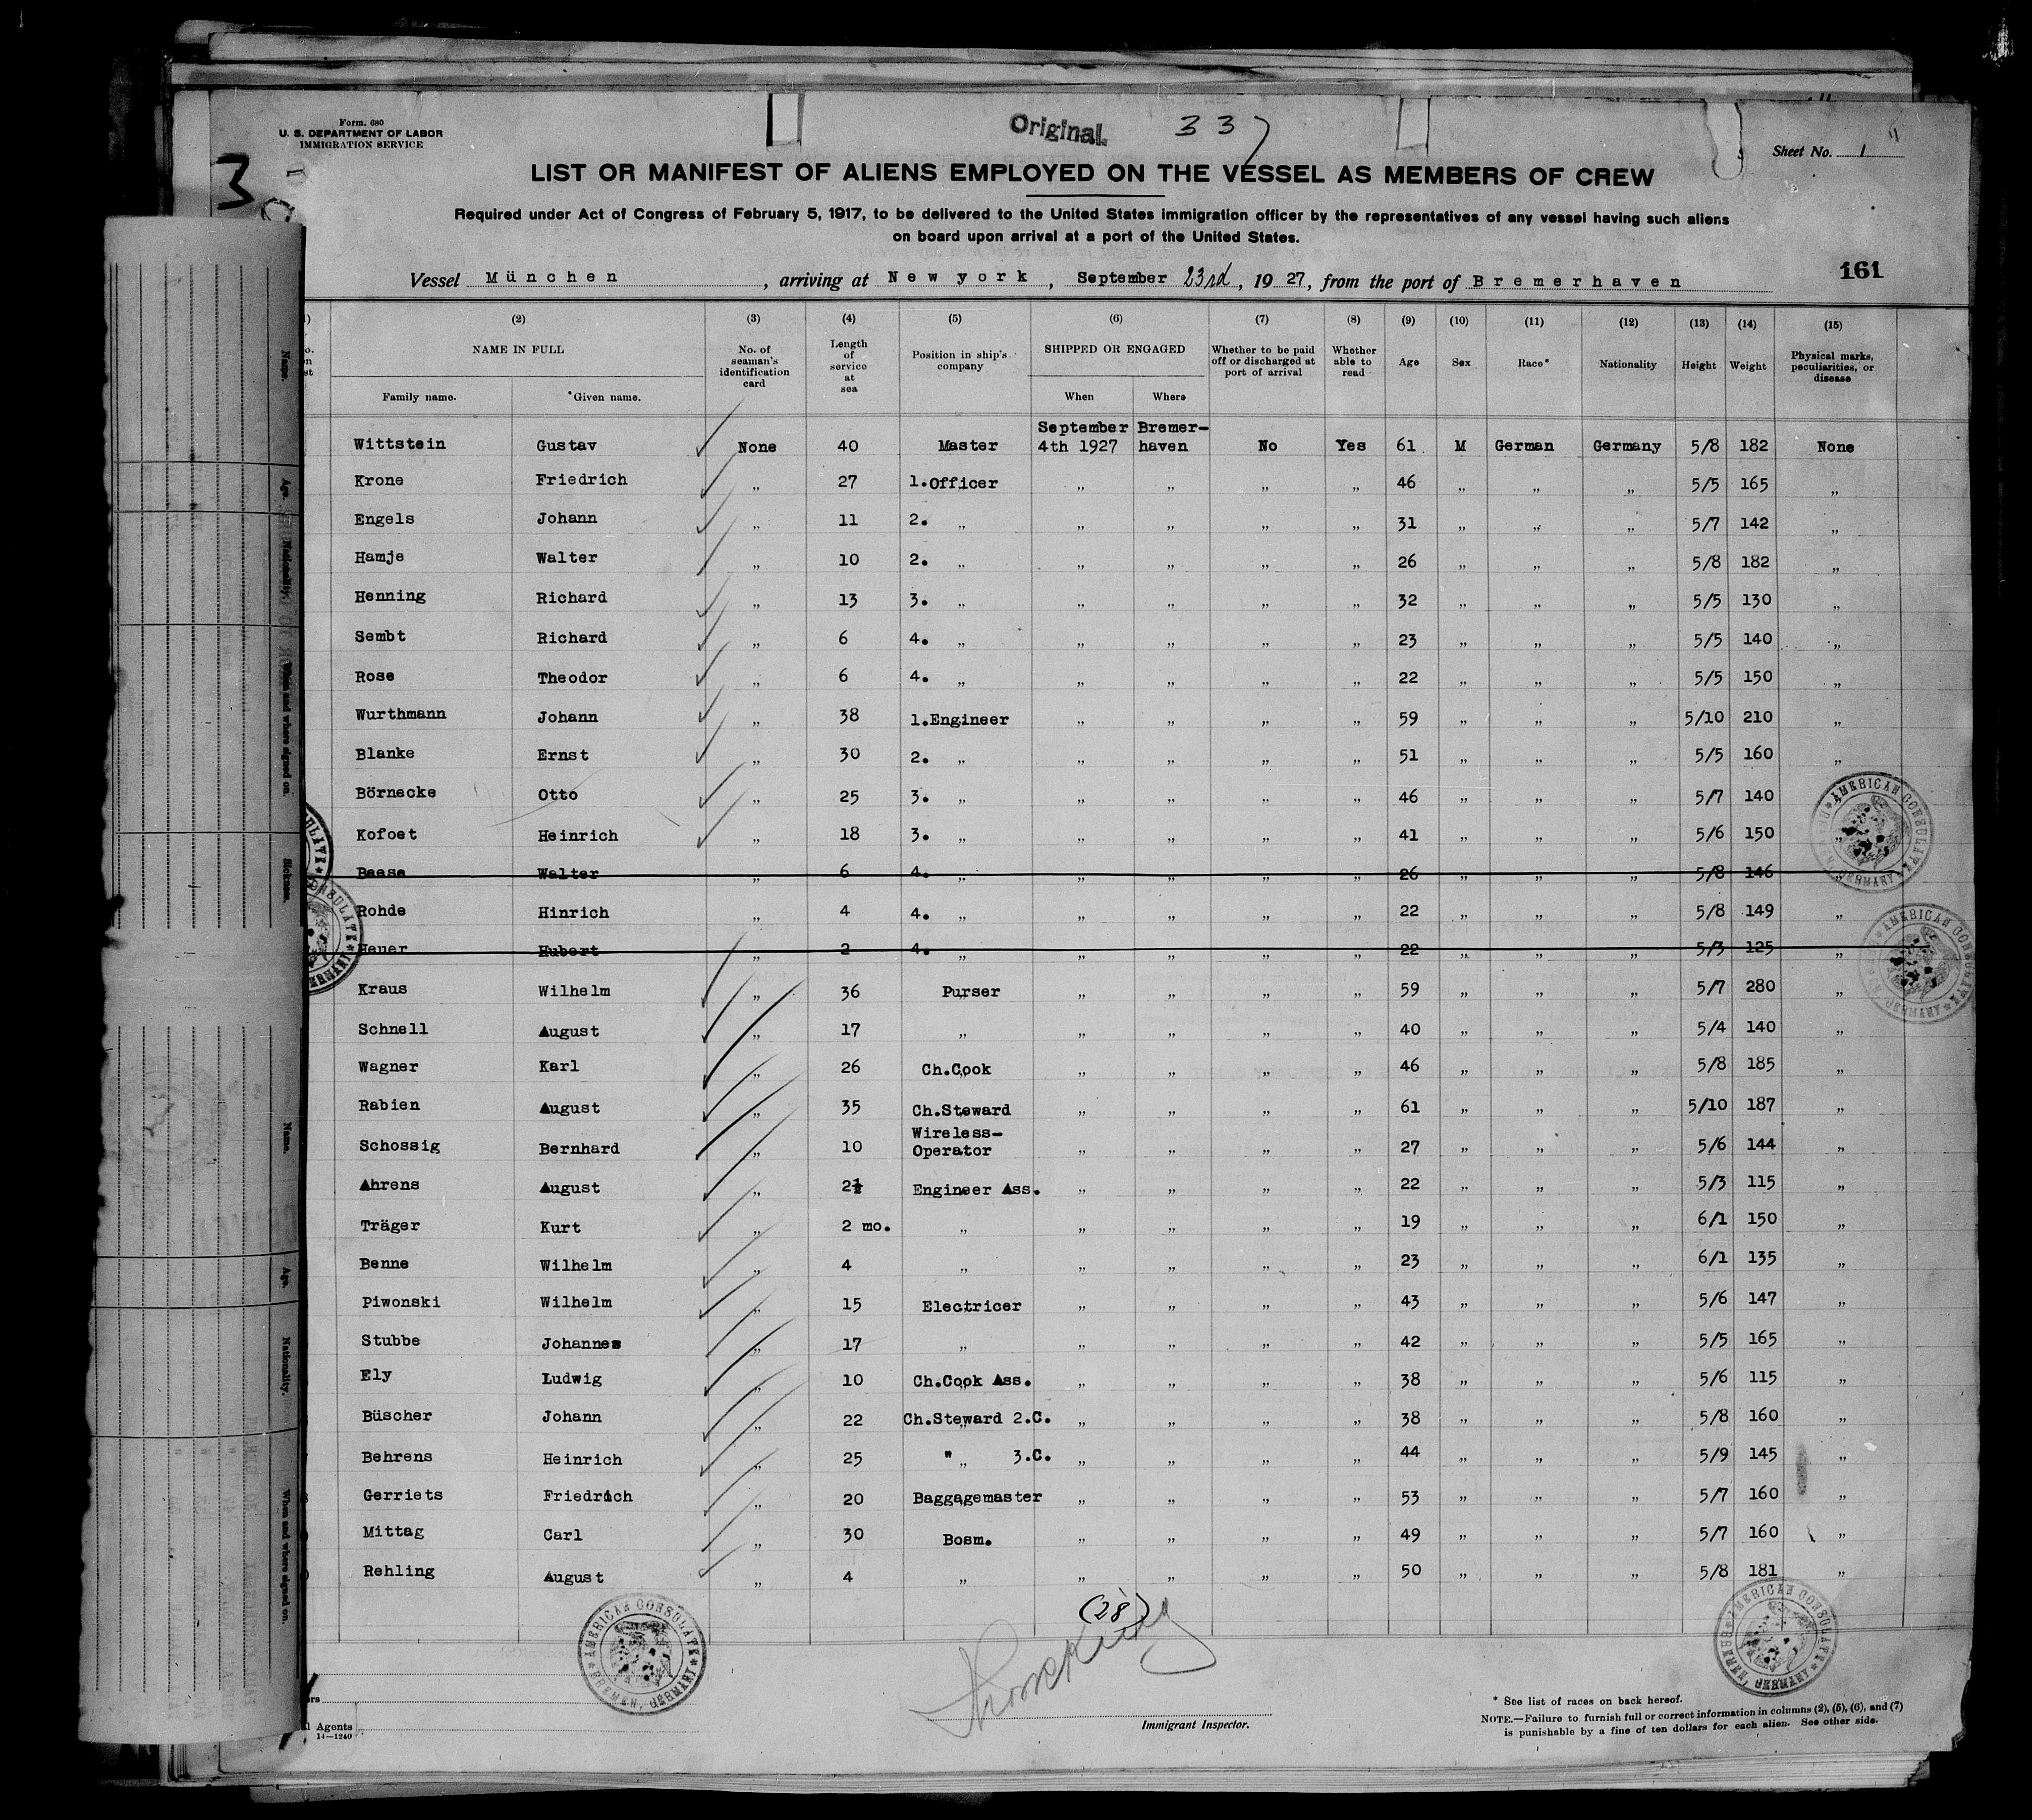 Form. 680
U. S. DEPARTMENT OF LABOR
IMMIGRATION SERVICE
3
Original
337
Sheet No. 1
LIST OR MANIFEST OF ALIENS EMPLOYED ON THE VESSEL AS MEMBERS OF CREW
Required under Act of Congress of February 5, 1917, to be delivered to the United States immigration officer by the representatives of any vessel having such aliens
on board upon arrival at a port of the United States.
161
Vessel München, arriving at New york, September 23rd, 1927, from the port of Bremerhaven
(2) (3) (4) (5) (6) (7) (8) (9) (10) (11) (12) (13) (14) (15)
NAME IN FULL No. of seaman's identification card Length of service at sea Position in ship's company SHIPPED OR ENGAGED Whether to be paid off or discharged at port of arrival Whether able to read Age Sex Race* Nationality Height Weight Physical marks, peculiarities, or disease
Family name. *Given name. When Where
Wittstein Gustav None 40 Master September 4th 1927 Bremer-haven No Yes 61 M German Germany 5/8 182 None
Krone Friedrich „ 27 1.Officer „ „ „ „ 46 „ „ „ 5/5 165 „
Engels Johann „ 11 2. „ „ „ „ „ 31 „ „ „ 5/7 142 „
Hamje Walter „ 10 2. „ „ „ „ „ 26 „ „ „ 5/8 182 „
Henning Richard „ 13 3. „ „ „ „ „ 32 „ „ „ 5/5 130 „
Sembt Richard „ 6 4. „ „ „ „ „ 23 „ „ „ 5/5 140 „
Rose Theodor „ 6 4. „ „ „ „ „ 22 „ „ „ 5/5 150 „
Wurthmann Johann „ 38 1.Engineer „ „ „ „ 59 „ „ „ 5/10 210 „
Blanke Ernst „ 30 2. „ „ „ „ „ 51 „ „ „ 5/5 160 „
Börnecke Otto „ 25 3. „ „ „ „ „ 46 „ „ „ 5/7 140 „
Kofoet Heinrich „ 18 3. „ „ „ „ „ 41 „ „ „ 5/6 150 „
Baase Walter „ 6 4. „ „ „ „ „ 26 „ „ „ 5/8 146 „
Rohde Hinrich „ 4 4. „ „ „ „ „ 22 „ „ „ 5/8 149 „
Heuer Hubert „ 2 4. „ „ „ „ „ 22 „ „ „ 5/3 125 „
Kraus Wilhelm „ 36 Purser „ „ „ „ 59 „ „ „ 5/7 280 „
Schnell August „ 17 „ „ „ „ „ 40 „ „ „ 5/4 140 „
Wagner Karl „ 26 Ch.Cook „ „ „ „ 46 „ „ „ 5/8 185 „
Rabien August „ 35 Ch.Steward „ „ „ „ 61 „ „ „ 5/10 187 „
Schossig Bernhard „ 10 Wireless-Operator „ „ „ „ 27 „ „ „ 5/6 144 „
Ahrens August „ 2½ Engineer Ass. „ „ „ „ 22 „ „ „ 5/3 115 „
Träger Kurt „ 2 mo. „ „ „ „ „ 19 „ „ „ 6/1 150 „
Benne Wilhelm „ 4 „ „ „ „ „ 23 „ „ „ 6/1 135 „
Piwonski Wilhelm „ 15 Electricer „ „ „ „ 43 „ „ „ 5/6 147 „
Stubbe Johannes „ 17 „ „ „ „ „ 42 „ „ „ 5/5 165 „
Ely Ludwig „ 10 Ch.Cook Ass. „ „ „ „ 38 „ „ „ 5/6 115 „
Büscher Johann „ 22 Ch.Steward 2.C. „ „ „ „ 38 „ „ „ 5/8 160 „
Behrens Heinrich „ 25 " „ 3.C. „ „ „ „ 44 „ „ „ 5/9 145 „
Gerriets Friedrich „ 20 Baggagemaster „ „ „ „ 53 „ „ „ 5/7 160 „
Mittag Carl „ 30 Bosm. „ „ „ „ 49 „ „ „ 5/7 160 „
Rehling August „ 4 „ „ „ „ „ 50 „ „ „ 5/8 181 „
(28)
AMERICAN CONSULATE BREMEN, GERMANY
Immigrant Inspector.
Agents
14—1240
* See list of races on back hereof.
NOTE.—Failure to furnish full or correct information in columns (2), (5), (6), and (7)
is punishable by a fine of ten dollars for each alien. See other side.
Name.
Age.
Nationality.
When and where signed on.
Sickness.
Name.
Age.
Nationality.
When and where signed on.